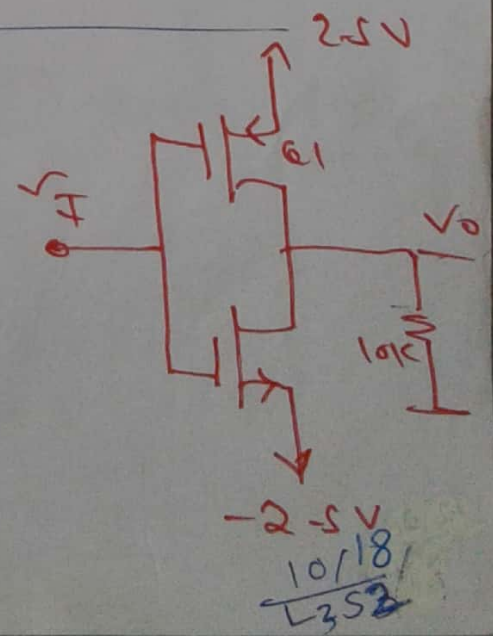 2.5V
Q1
VI
Vo
10K
-2.5V
10/18
L3S3